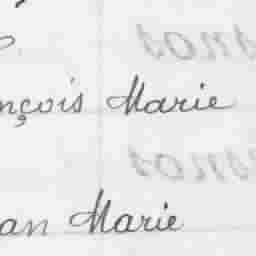 nçois Marie
an Marie